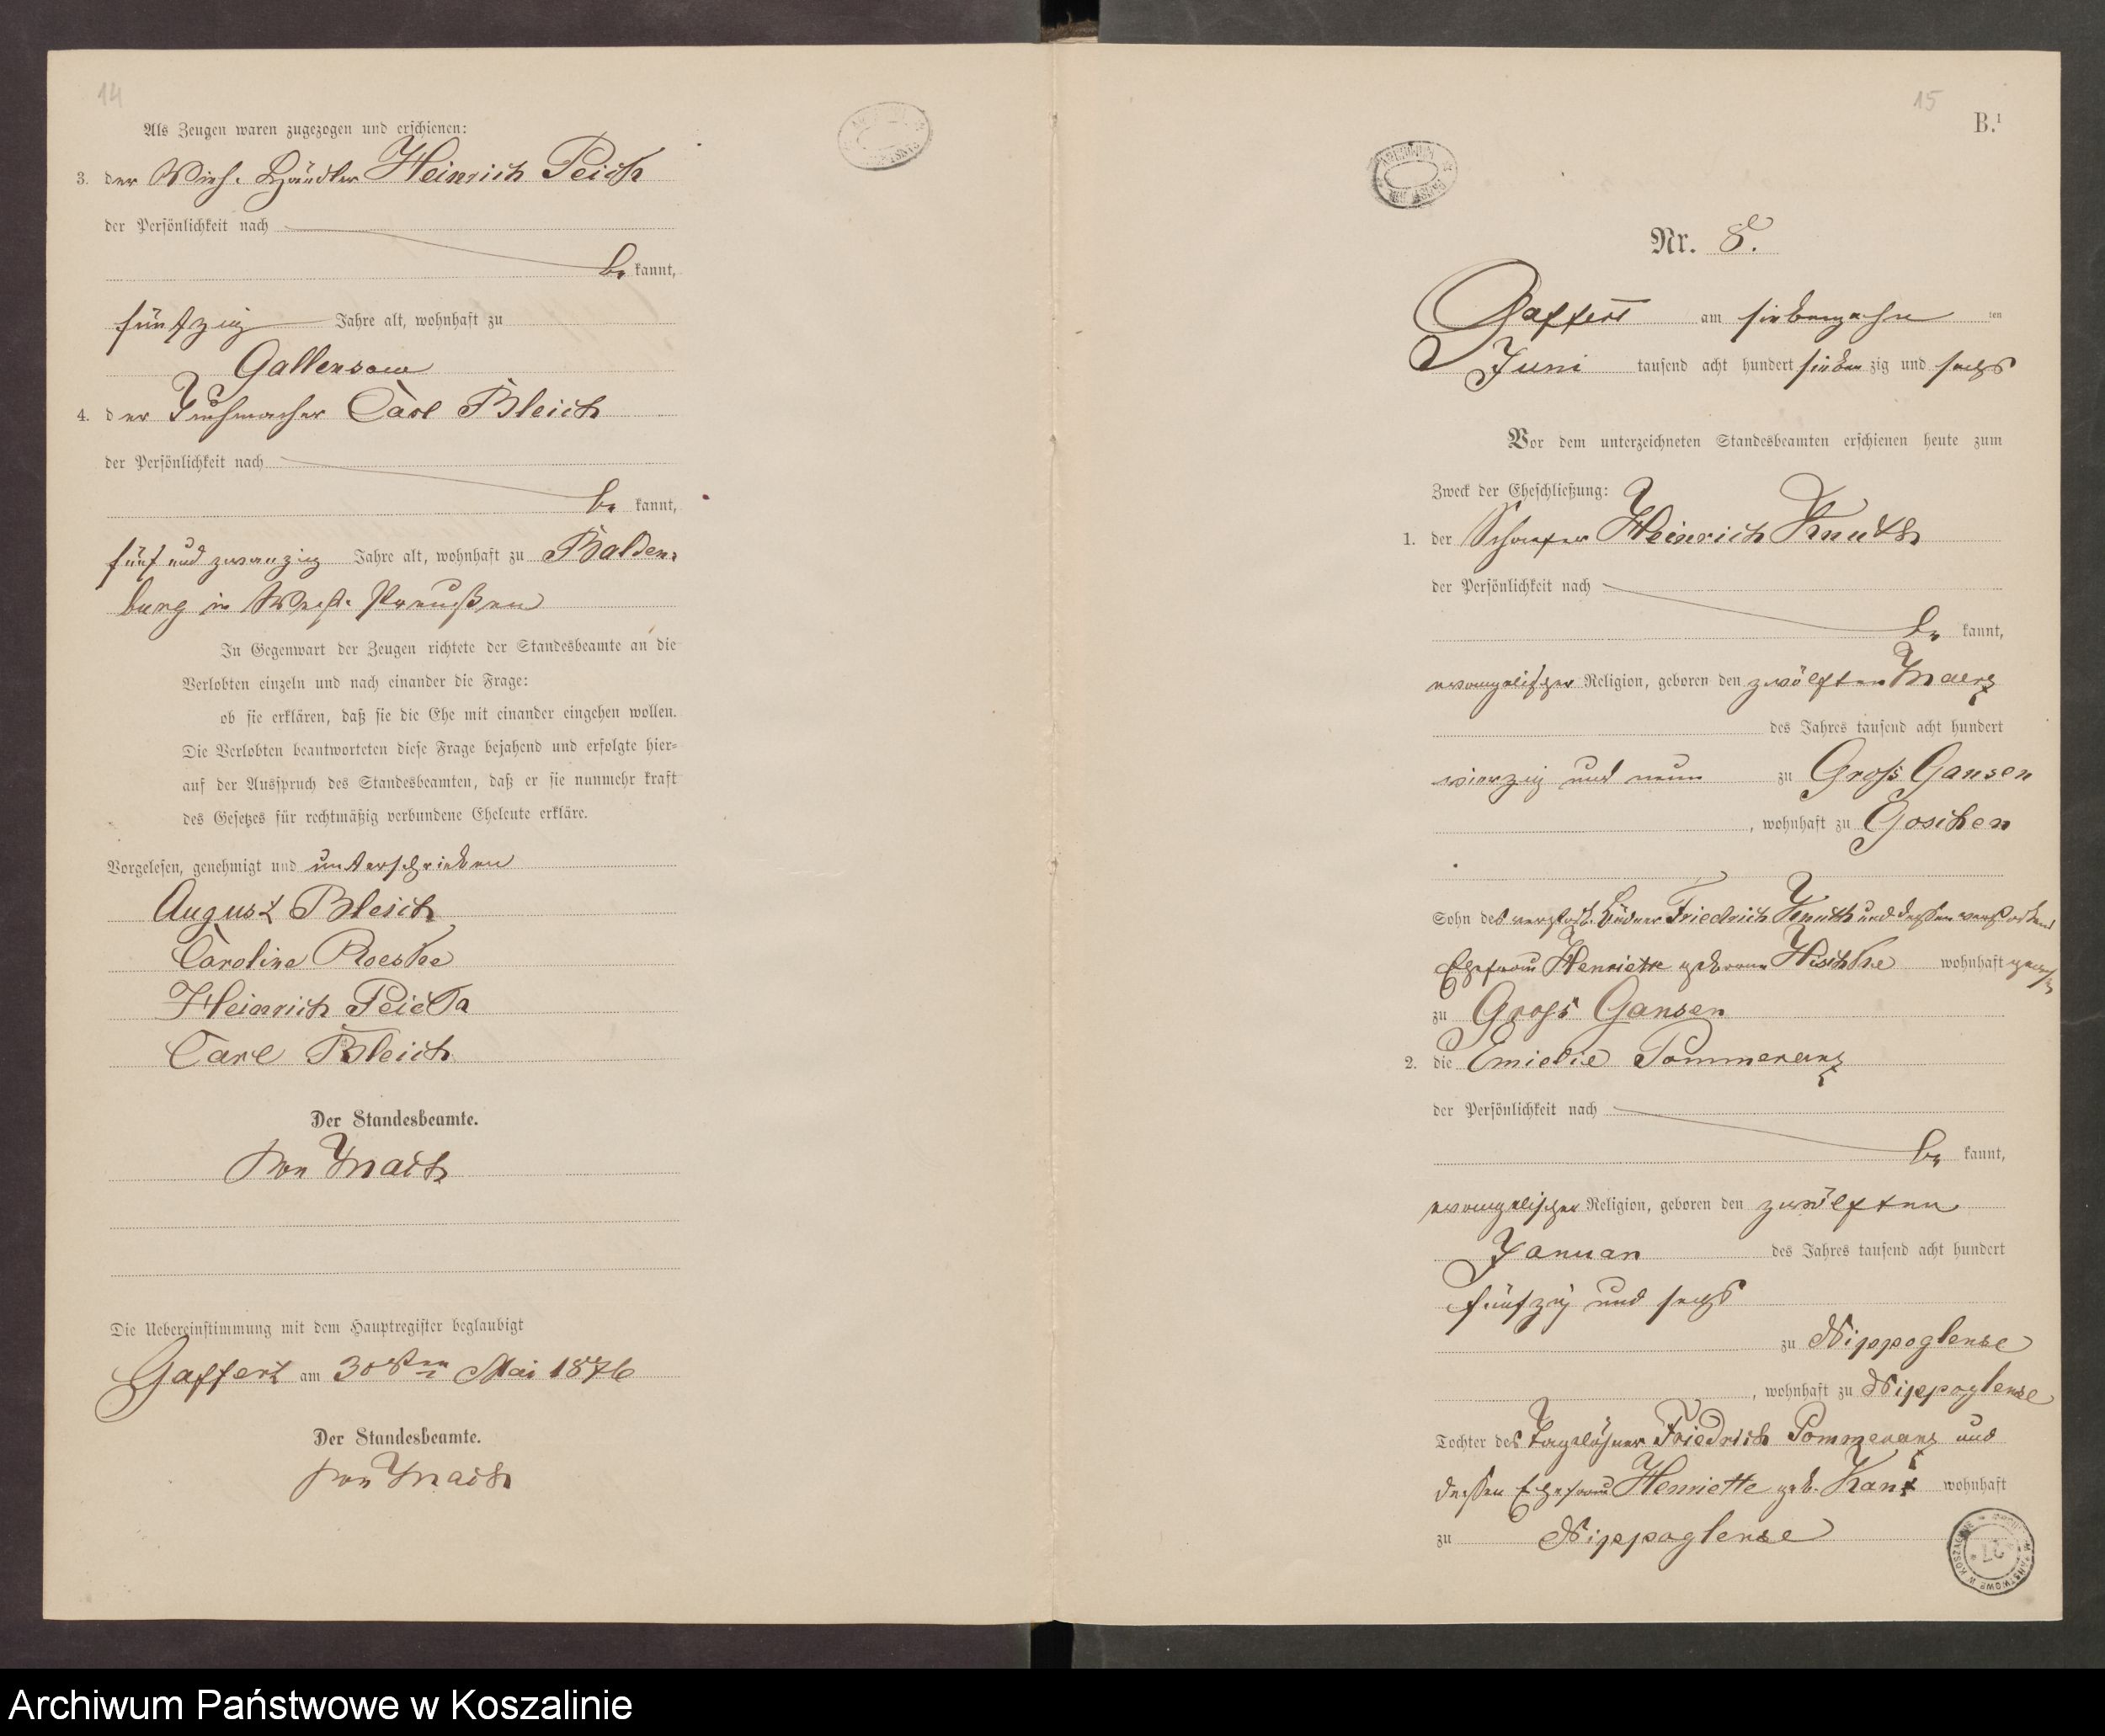 14
Als Zeugen waren zugezogen und erschienen:
3. der Vieh-Händler Heinrich Peich
der Persönlichkeit nach
be kannt,
fünfzig Jahre alt, wohnhaft zu
Gallensow
4. der Tuchmacher Carl Bleich
der Persönlichkeit nach
be kannt,
fünf und zwanzig Jahre alt, wohnhaft zu Balden-
burg in West-Preußen
In Gegenwart der Zeugen richtete der Standesbeamte an die
Verlobten einzeln und nach einander die Frage:
ob sie erklären, daß sie die Ehe mit einander eingehen wollen.
Die Verlobten beantworteten diese Frage bejahend und erfolgte hier-
auf der Ausspruch des Standesbeamten, daß er sie nunmehr kraft
des Gesetzes für rechtmäßig verbundene Eheleute erkläre.
Vorgelesen, genehmigt und unterschrieben
August Bleich
Caroline Roeske
Heinrich Peich
Carl Bleich
Der Standesbeamte.
von Mach
Die Uebereinstimmung mit dem Hauptregister beglaubigt
Gaffert am 30sten Mai 1876
Der Standesbeamte.
von Mach
15
B.¹
Nr. 8.
Gaffert am siebenzehn ten
Juni tausend acht hundert sieben zig und sechs
Vor dem unterzeichneten Standesbeamten erschienen heute zum
Zweck der Eheschließung:
1. der Schaefer Heinrich Knuth
der Persönlichkeit nach
be kannt,
evangelischer Religion, geboren den zwölften Maerz
des Jahres tausend acht hundert
vierzig und neun zu Gross Gansen
, wohnhaft zu Goschen
Sohn des verstorb. Büdner Friedrich Knuth und dessen verstorbene
Ehefrau Henriette geborene Hischke wohnhaft
zu Gross Gansen
2. die Emielie Pommerenz
der Persönlichkeit nach
be kannt,
evangelischer Religion, geboren den zwölften
Januar des Jahres tausend acht hundert
fünfzig und sechs
zu Nippoglense
, wohnhaft zu Nippoglense
Tochter des Tagelöhner Friedrich Pommerenz und
dessen Ehefrau Henriette geb. Kant wohnhaft
zu Nippoglense
Archiwum Państwowe w Koszalinie